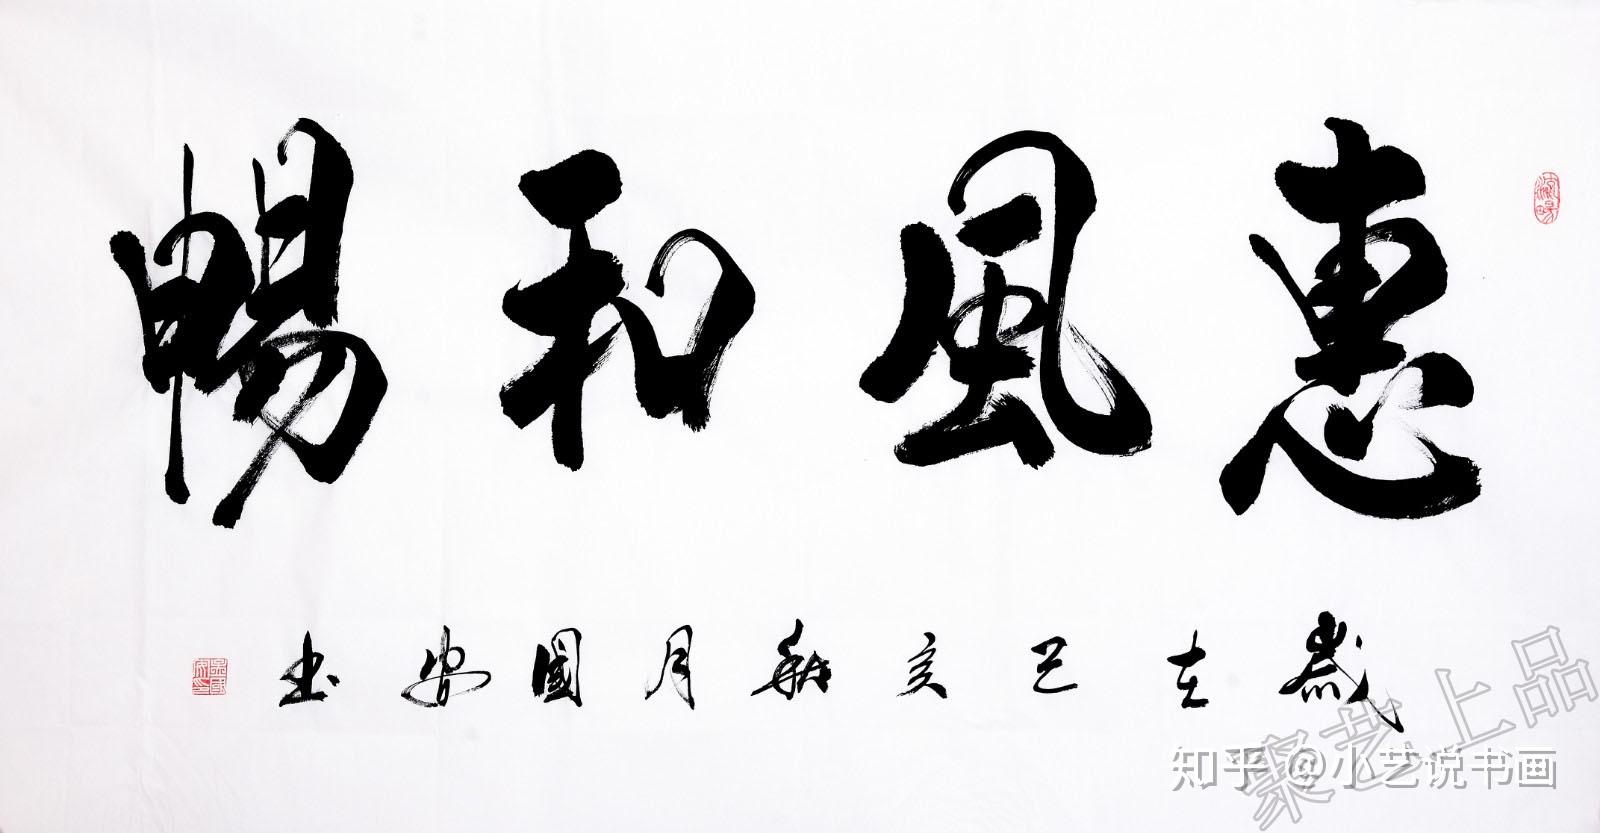 惠風和暢
歲在己亥秋月國安书
知乎 @小艺说书画
聚艺上品